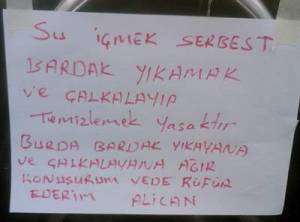 SU İÇMEK SERBEST
BARDAK YIKAMAK
VE ÇALKALAYIP
Temizlemek Yasaktır
BURDA BARDAK YIKAYANA
VE ÇALKALAYANA AĞIR
KONUŞURUM VEDE KÜFÜR
EDERİM ALİCAN